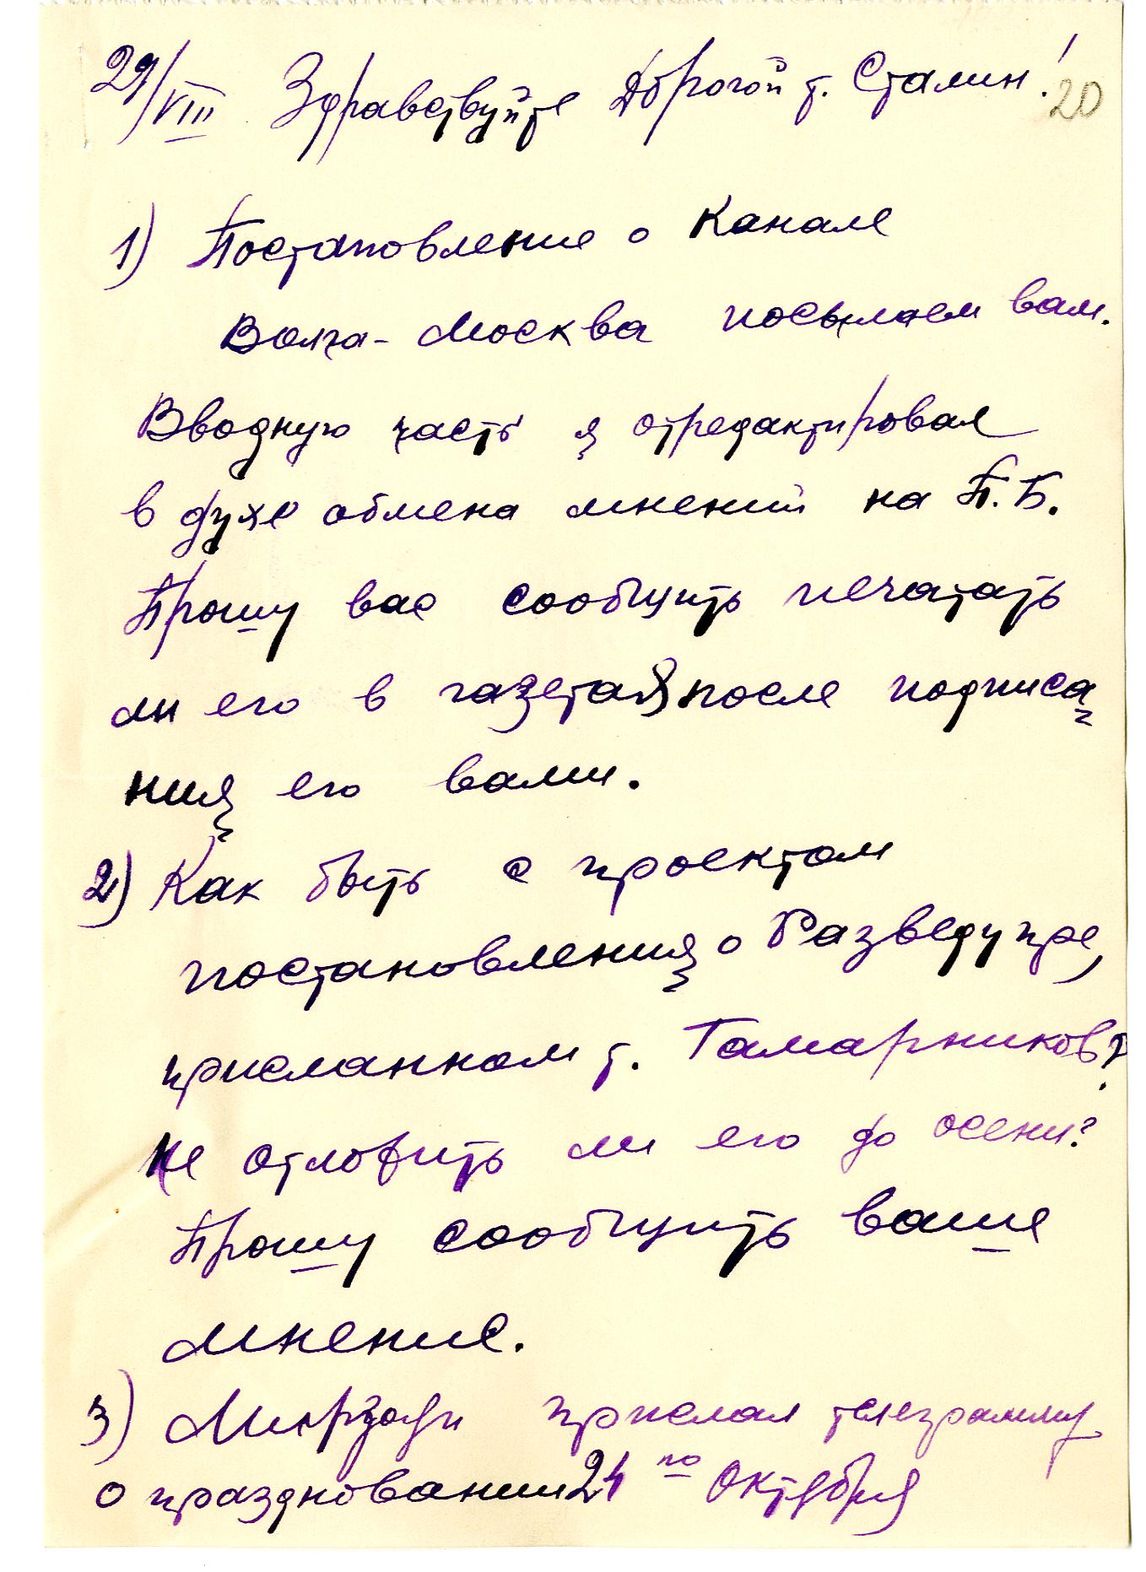 29/VIII Здравствуйте Дорогой т. Сталин!
20
1) Постановление о Канале
Волга-Москва посылаем вам.
Вводную часть я отредактировал
в духе обмена мнений на П.Б.
Прошу вас сообщить печатать
ли его в газетах после подписа
ния его вами.
2) Как быть с проектом
постановления о Разведупре,
присланном т. Тамарников?
Не отложить ли его до осени?
Прошу сообщить ваше
мнение.
3) прислал телеграмму
о праздновании 24 го Октября